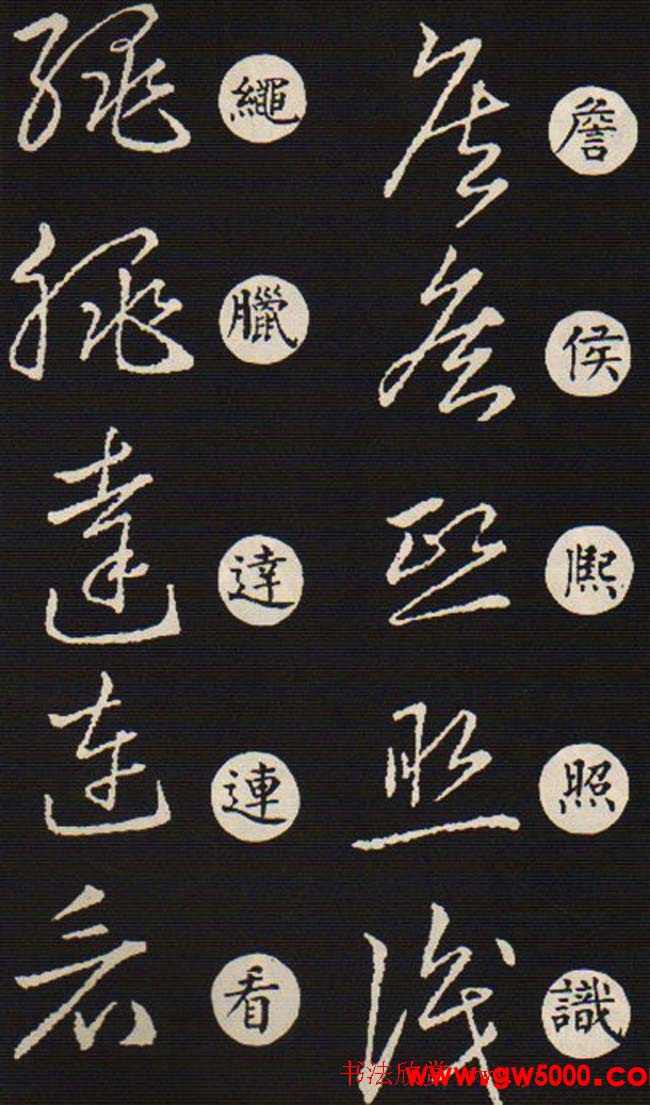 詹
侯
熙
照
識
繩
臘
達
連
看
书法欣赏 www.gw5000.com